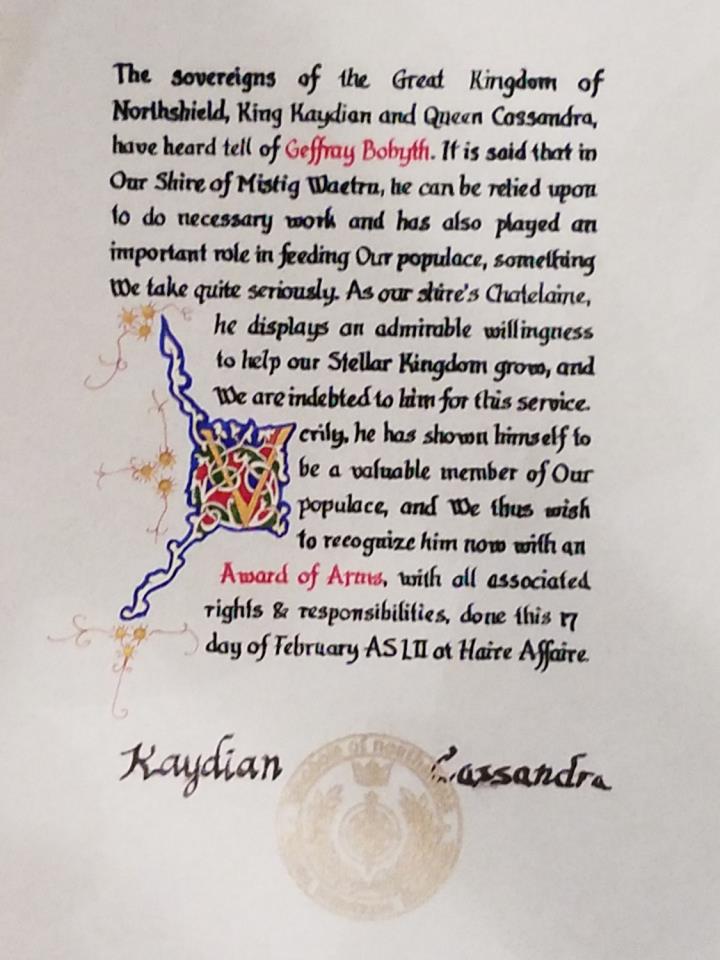 The sovereigns of the Great Kingdom of
Northshield, King Kaydian and Queen Cassandra,
have heard tell of Geffray Bobyth. It is said that in
Our Shire of Mistig Waetru, he can be relied upon
to do necessary work and has also played an
important role in feeding Our populace, something
We take quite seriously. As our shire's Chatelaine,
he displays an admirable willingness
to help our Stellar Kingdom grow, and
We are indebted to him for this service.
Verily, he has shown himself to
be a valuable member of Our
populace, and We thus wish
to recognize him now with an
Award of Arms, with all associated
rights & responsibilities, done this 17
day of February AS LII at Haire Affaire.
Kaydian Cassandra
of north